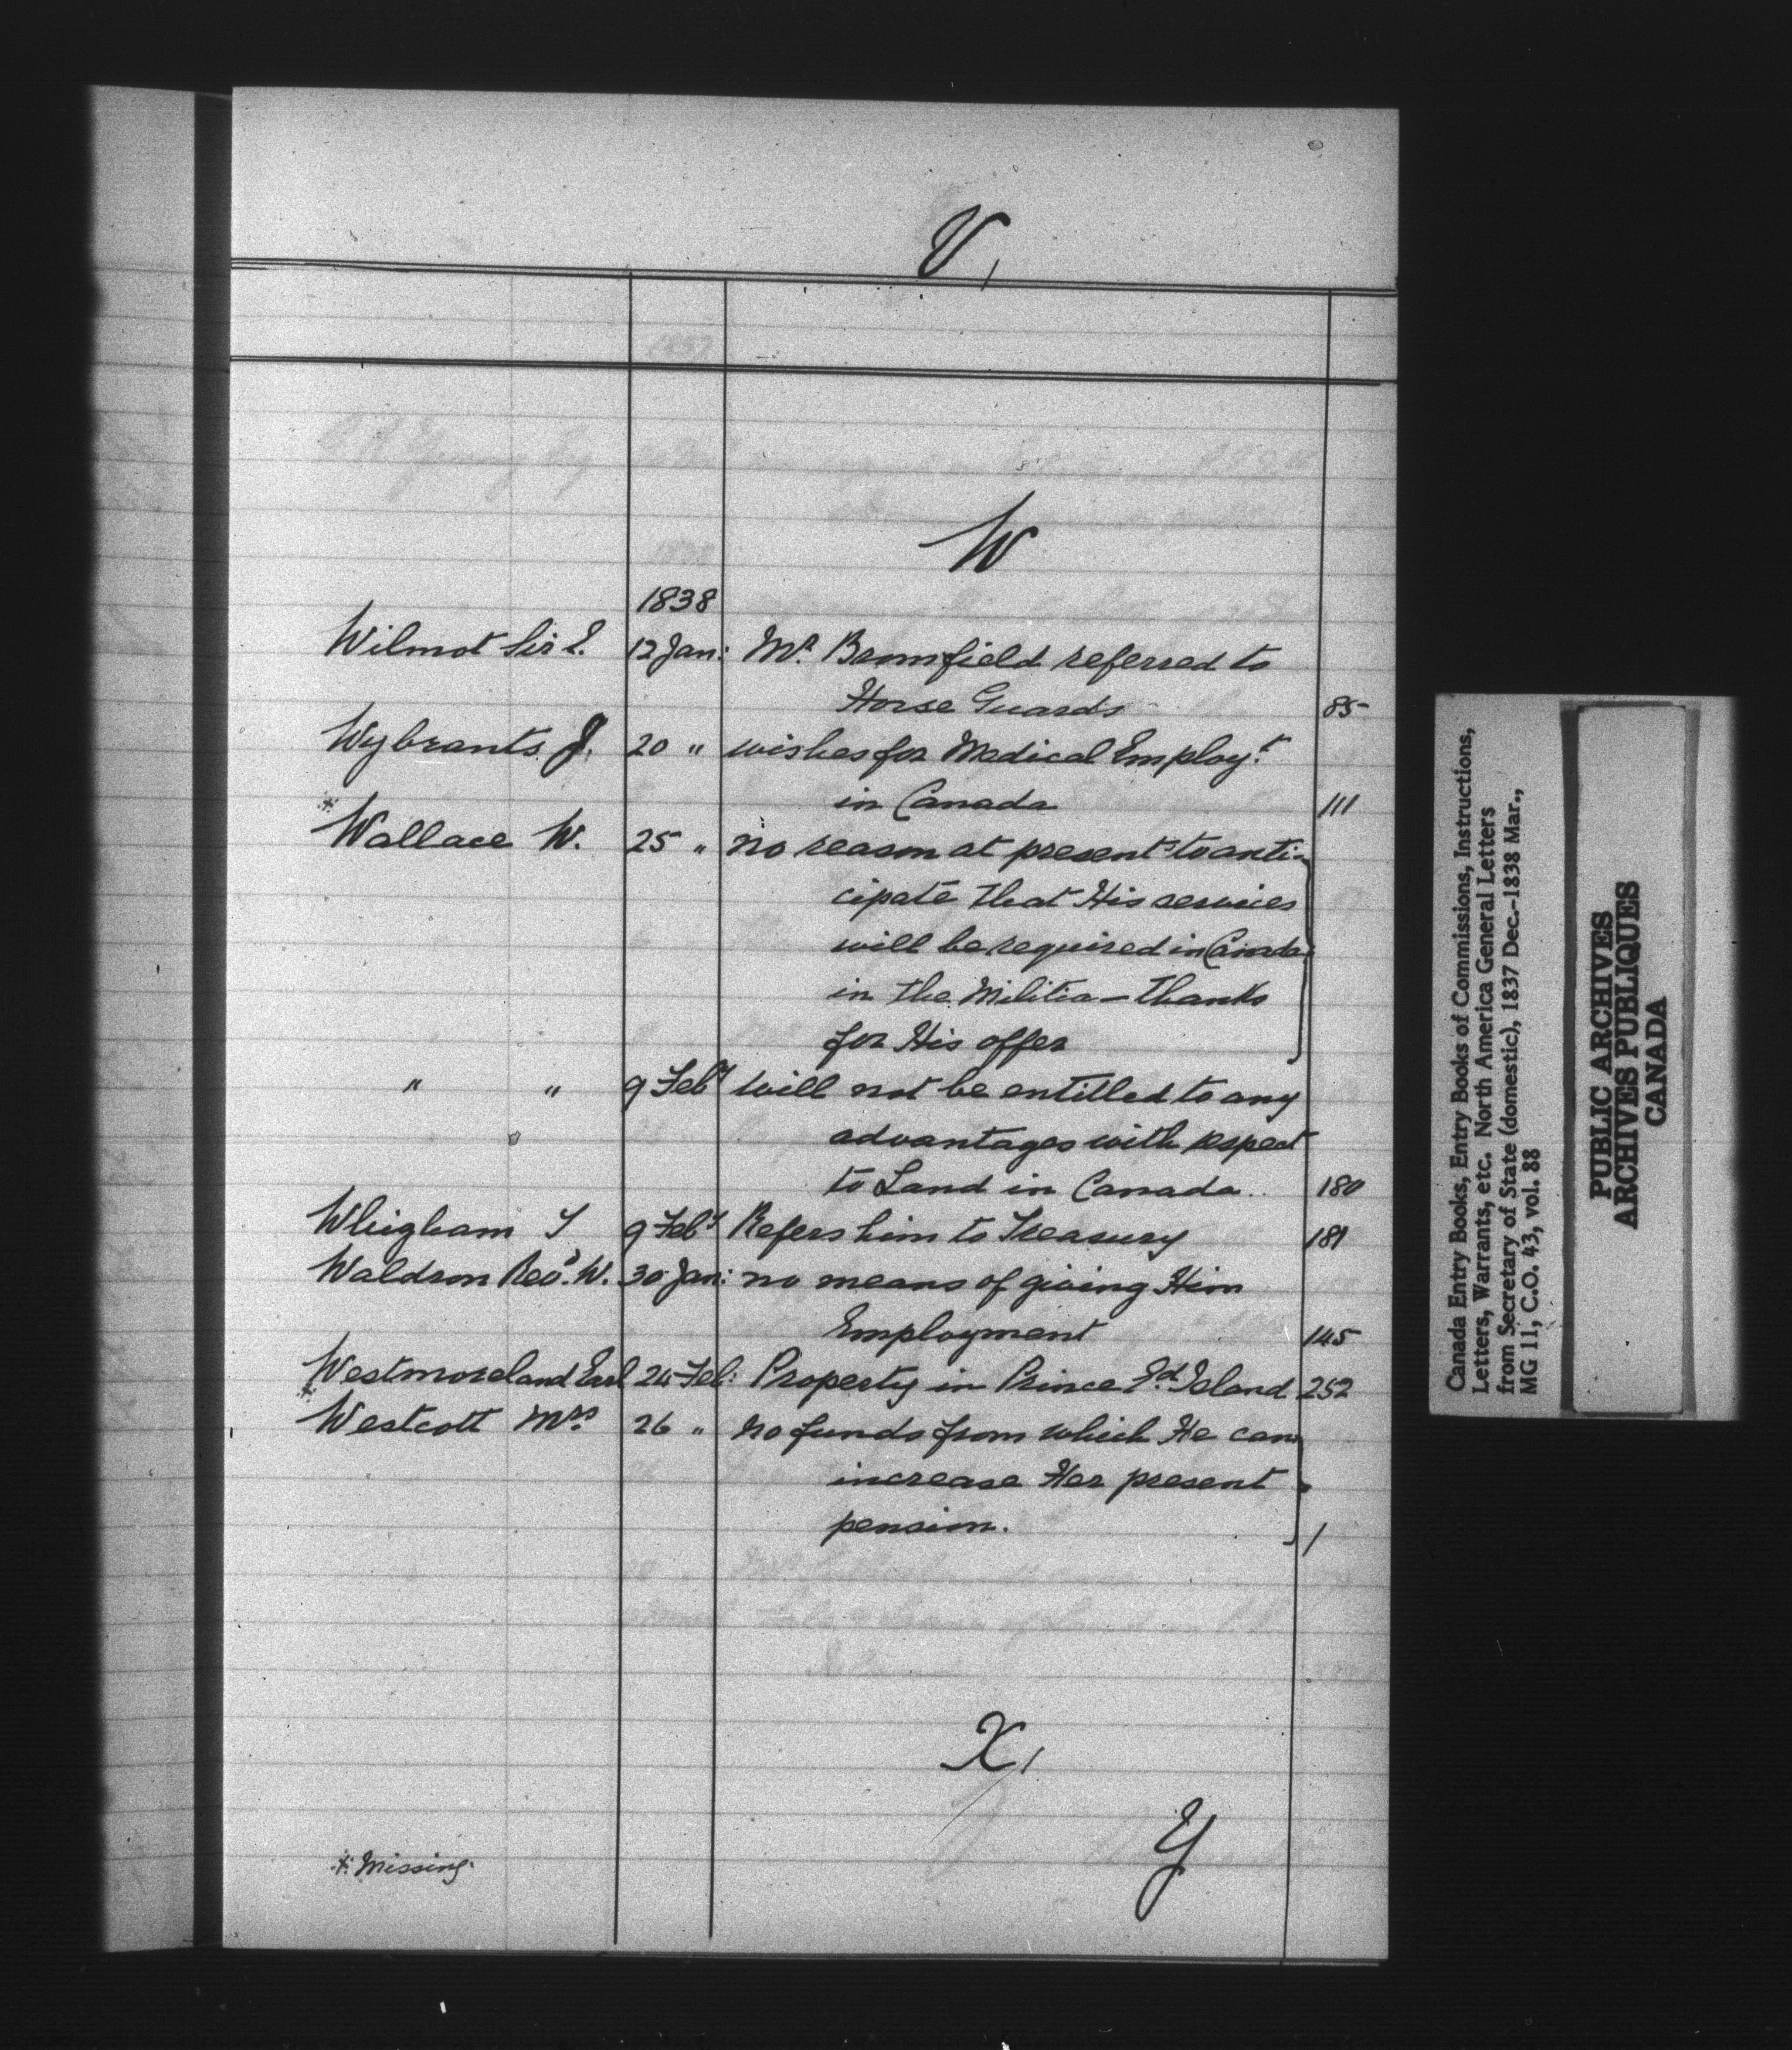 V,
W
1838
Wilmot Sir E. 12 Jan: Mr. Bromfield referred to
Horse Guards 85
Wybrants J. 20 " wishes for Medical Employ.t
in Canada 111
* Wallace W. 25 " no reason at present to anti-
cipate that His services
will be required in Canada
in the Militia — thanks
for His offer
" " 9 Feby will not be entitled to any
advantages with respect
to Land in Canada.. 180
Whigham T 9 Feby Refers him to Treasury 181
Waldron Revd. W. 30 Jan: no means of giving Him
Employment 145
Westmoreland Earl 24 Feb: Property in Prince Ed. Island 252
* Westcott Mrs 26 " no funds from which He can
increase Her present
pension. /
X,
Y
* Missing.
Canada Entry Books, Entry Books of Commissions, Instructions,
Letters, Warrants, etc. North America General Letters
from Secretary of State (domestic), 1837 Dec.-1838 Mar.,
MG 11, C.O. 43, vol. 88
PUBLIC ARCHIVES
ARCHIVES PUBLIQUES
CANADA